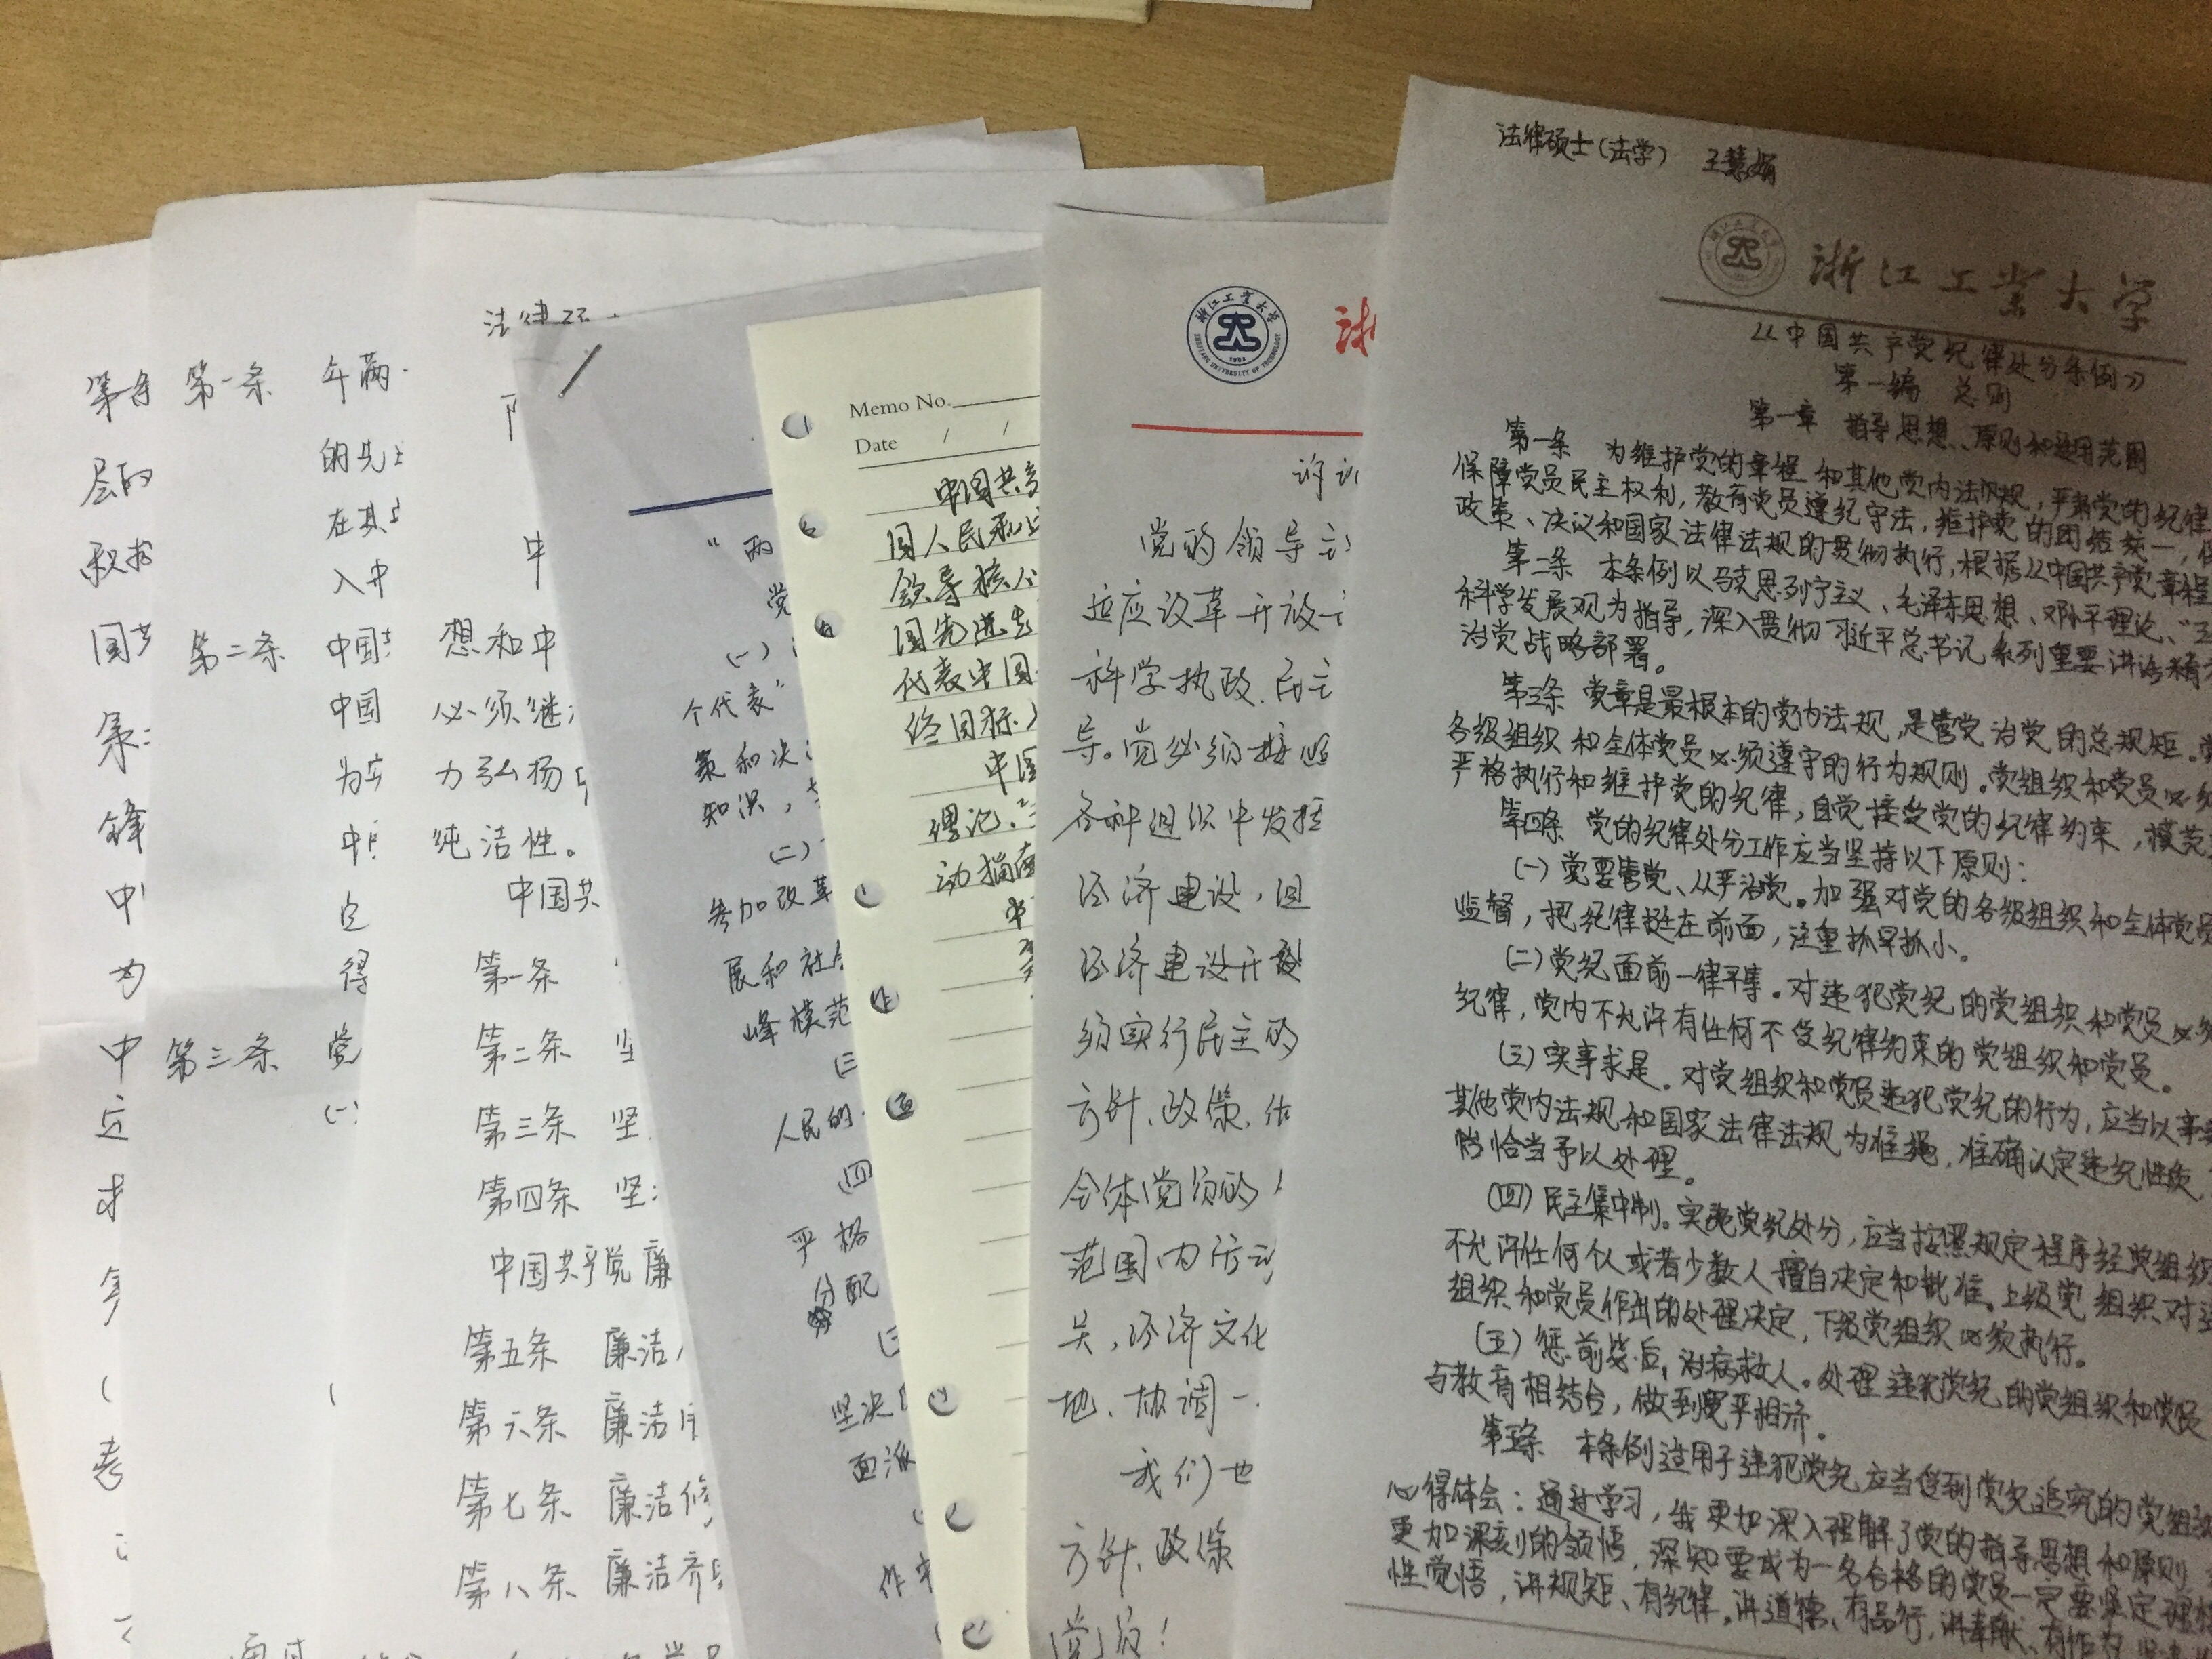 第一条
年满
的先
在其
入中
第二条
中国
中国
为
中
得
第三条
党
(一)
层的
中
法律
中
想和中
必须继
力弘扬
纯洁性。
中国共
第一条
第二条 坚
第三条 坚
第四条 坚
中国共产党廉
第五条 廉洁
第六条 廉洁
第七条 廉洁修
第八条 廉洁齐
“两
党
(一)
个代表”
策和决
知识,
(二)
参加改革
展和社
峰模范
(三
人民的
(四
严格
分配
坚决
面派
作
Memo No.
Date / /
中国共
国人民和
领导核心
国先进
代表中国
终目标
中国
理论、
动指南
浙江工业大学
ZHEJIANG UNIVERSITY OF TECHNOLOGY
1953
浙
党的领导
适应改革开放
科学执政、民主
导。党必须按照
各种组织中发挥
经济建设,
经济建设开
须实行民主的
方针、政策、
全体党员的
范围内活动
关,经济文化
地、协调一
我们也
方针、政策
党员!
法律硕士(法学) 王慧娟
浙江工业大学
《中国共产党纪律处分条例》
第一编 总则
第一章 指导思想、原则和适用范围
第一条 为维护党的章程和其他党内法规,严肃党的纪律
保障党员民主权利,教育党员遵纪守法,维护党的团结统一,
政策、决议和国家法律法规的贯彻执行,根据《中国共产党章程
第二条 本条例以马克思列宁主义、毛泽东思想、邓小平理论、“三
科学发展观为指导,深入贯彻习近平总书记系列重要讲话精
治党战略部署。
第三条 党章是最根本的党内法规,是管党治党的总规矩。
各级组织和全体党员必须遵守的行为规则。党组织和党员必
严格执行和维护党的纪律,自觉接受党的纪律约束,模范
第四条 党的纪律处分工作应当坚持以下原则:
(一)党要管党、从严治党。加强对党的各级组织和全体党员
监督,把纪律挺在前面,注重抓早抓小。
(二)党纪面前一律平等。对违犯党纪的党组织和党员必须
纪律,党内不允许有任何不受纪律约束的党组织和党员。
(三)实事求是。对党组织和党员违犯党纪的行为,应当以事
其他党内法规和国家法律法规为准绳,准确认定违纪性质,
恰当予以处理。
(四)民主集中制。实施党纪处分,应当按照规定程序经党组织
不允许任何个人或者少数人擅自决定和批准。上级党组织对
组织和党员作出的处理决定,下级党组织必须执行。
(五)惩前毖后,治病救人。处理违犯党纪的党组织和党员
与教育相结合,做到宽严相济。
第五条 本条例适用于违犯党纪应当受到党纪追究的党组
心得体会:通过学习,我更加深入理解了党的指导思想和原则
更加深刻的领悟,深知要成为一名合格的党员一定要坚定理
性觉悟,讲规矩、有纪律,讲道德、有品行,讲奉献、有作为